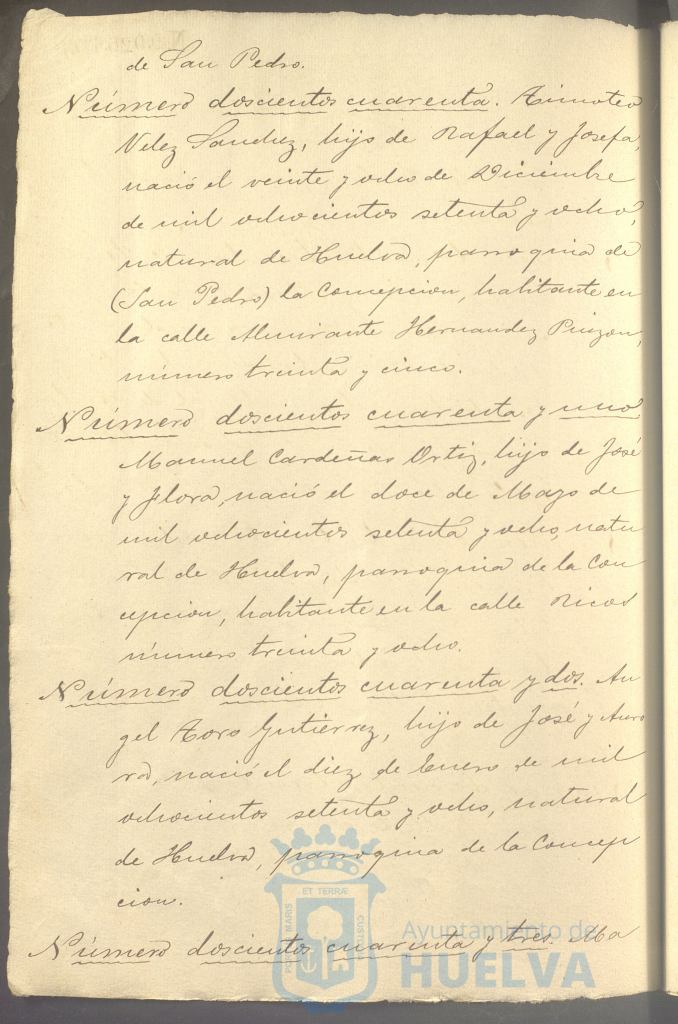 de San Pedro.
Número doscientos cuarenta. Timoteo
Velez Sanchez, hijo de Rafael y Josefa,
nació el veinte y ocho de Diciembre
de mil ochocientos setenta y ocho,
natural de Huelva, parroquia de
(San Pedro) la Concepcion, habitante en
la calle Almirante Hernandez Pinzon,
número treinta y cinco.
Número doscientos cuarenta y uno
Manuel Cardeñas Ortiz, hijo de José
y Flora, nació el doce de Mayo de
mil ochocientos setenta y ocho, natu
ral de Huelva, parroquia de la Con
cepcion, habitante en la calle Ricos
número treinta y ocho.
Número doscientos cuarenta y dos. An
gel Toro Gutiérrez, hijo de José y Auro
ra, nació el diez de Enero de mil
ochocientos setenta y ocho, natural
de Huelva, parroquia de la Concep
cion.
Número doscientos cuarenta y tres. Ma
PORTUS MARIS ET TERRÆ CUSTODIA
Ayuntamiento de
HUELVA